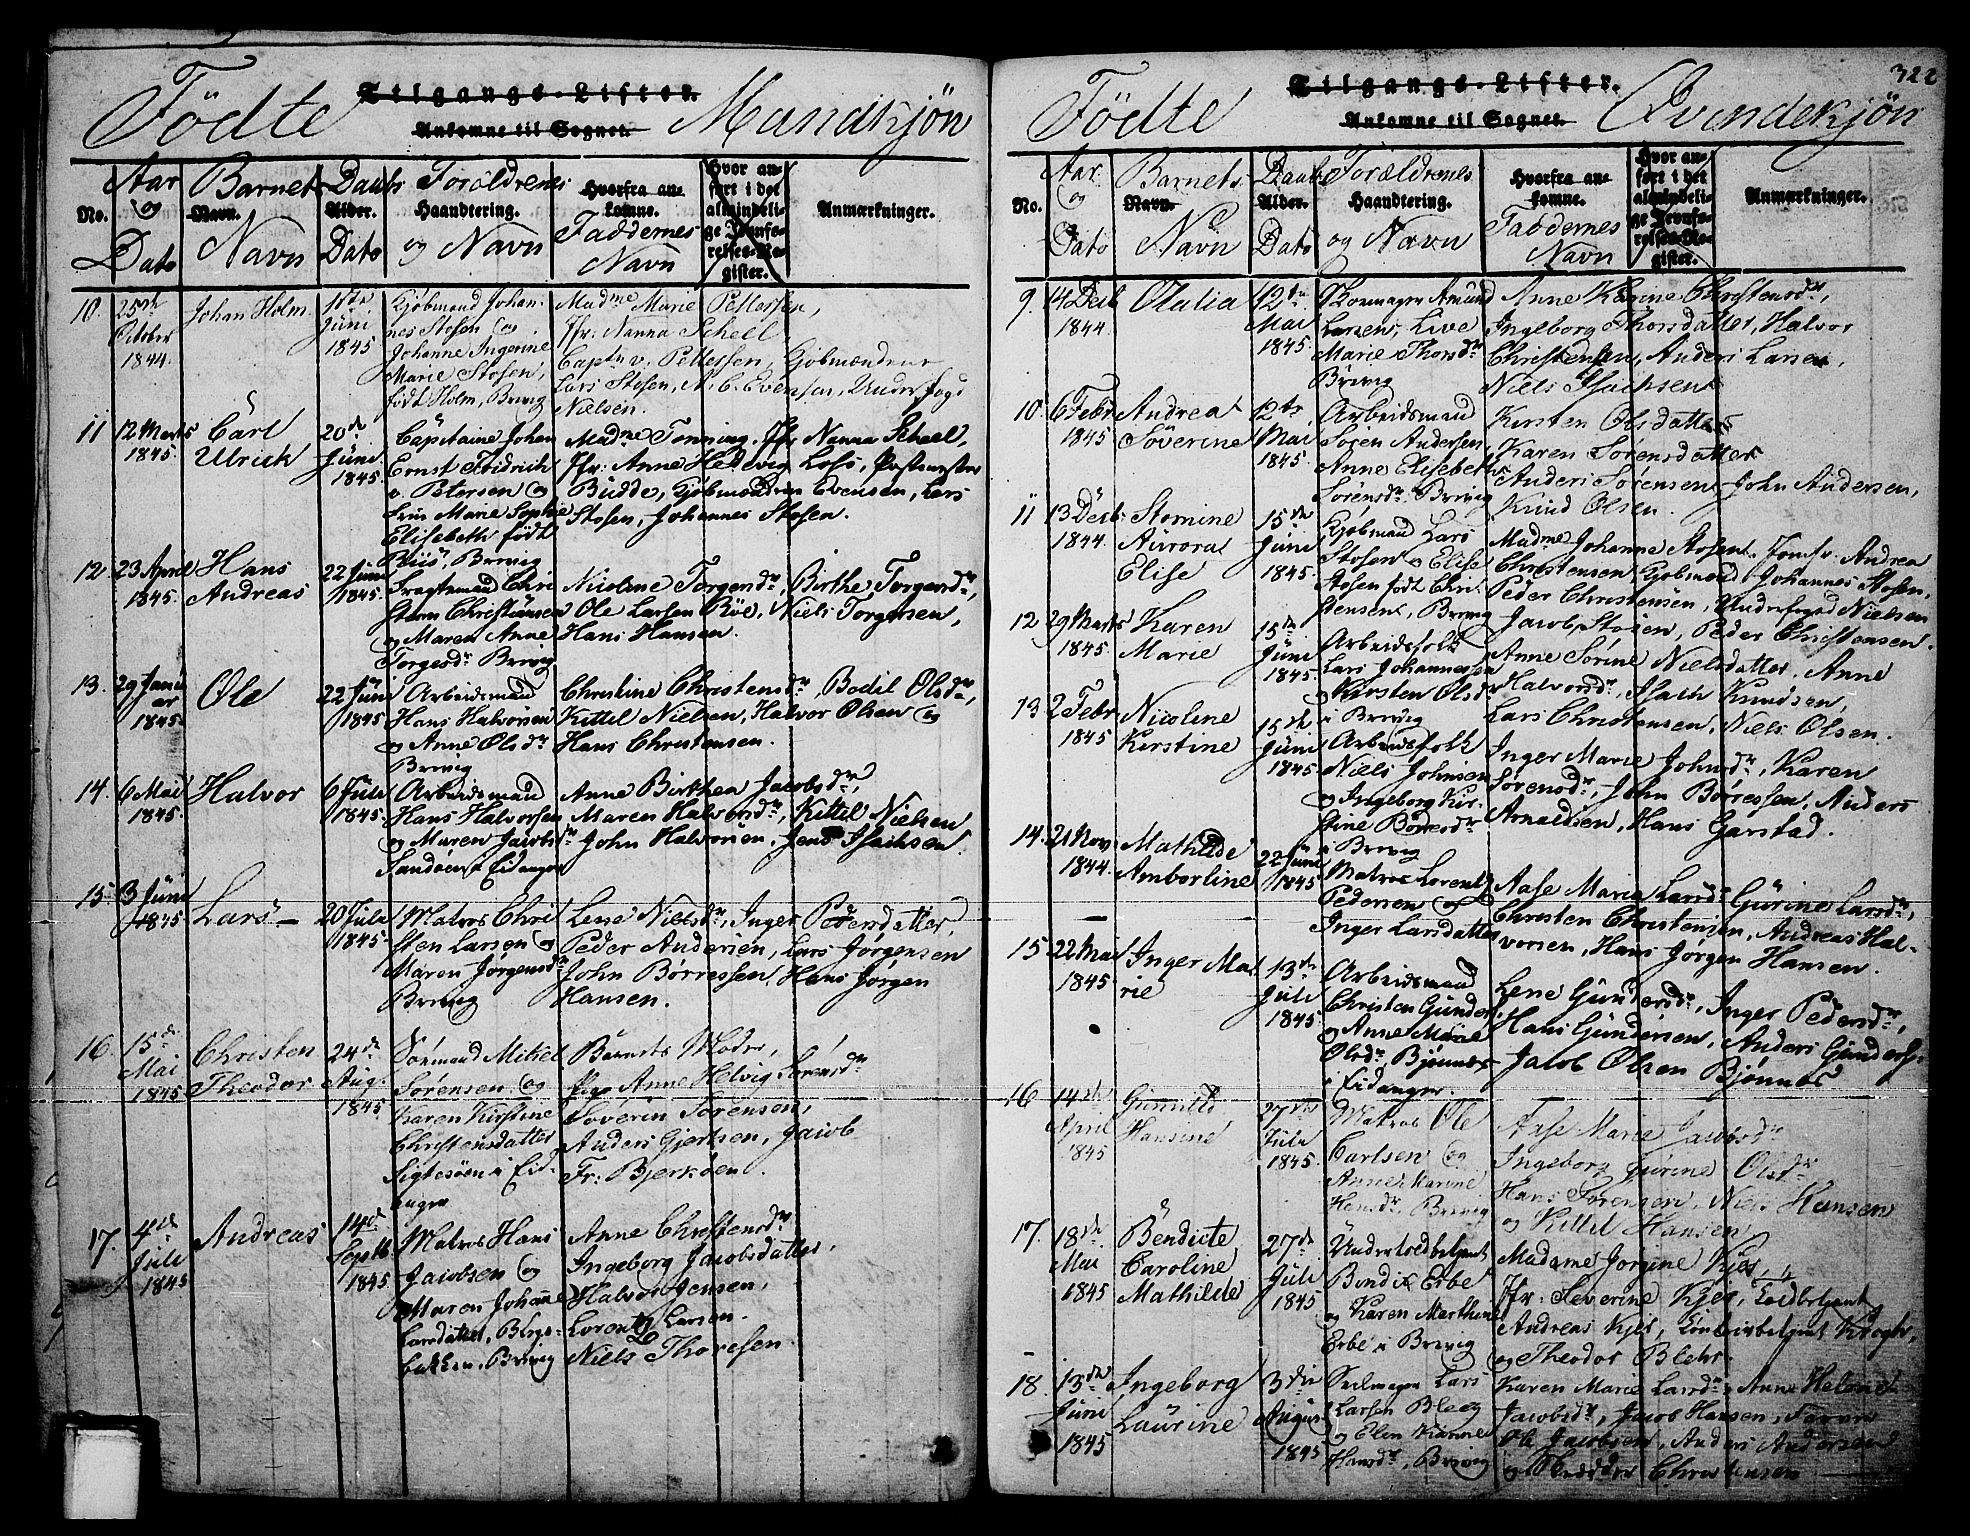 322
Födte Tilgangs-Lister. Mandkjön
Ankomne til Sognet.
No. Aar og Dato Barnets Navn. Navn Daabs Alder. Dato Forældrenes Haandtering. og Navn Hvorfra an-komne. Faddernes Navn Hvor an-ført i det almindeli-ge Jevnfø-relses-Re-gister. Anmærkninger.
10. 25de October 1844. Johan Holm. 11te Juni 1845
Kjøbmand Johan-
nes Stosen og
Johanne Ingerine
Marie Stosen,
født Holm, Brevig
Madme Marie Pettersen,
Jfr. Nanna Scheel
Captn v. Pettersen, Kjøbmændene
Lars Stosen, N. C. Evensen, Underfogd
Nielsen.
11 12 Marts 1845. Carl Ulrich 20de Juni 1845
Capitaine Johan
Ernst Fridrich
v. Petersen og
Marie Sophie
Elisabeth født
Brevig
Madme Tonning, Jfr Nanna Scheel,
Jfr: Anne Hedevig Lo
Budde, Kjøbmændene Evensen, Lars
Stosen, Johannes Stosen.
12. 23 April 1845. Hans Andreas 22 Juni 1845.
Fragtemand Chri
sten Christensen
og Maren Anne
Torgesdr Brevig
Nicoline Torgersdr, Birthe Torgersdr,
Ole Larsen Röe, Niels Torgersen,
Hans Hansen.
13. 29 Janu ar 1845. Ole 22 Juni 1845
Arbeidsmand
Hans Halvorsen
og Anne Olsdr
Brevig
Christine Christensdr, Bodil Olsdr,
Kittel Nielsen, Halvor Olsen og
Hans Christensen.
14. 6 Mai 1845. Halvor 6 Juli 1845.
Arbeidsmand
Hans Halvorsen
og Maren Jacobsdr
Sandøen i Eidanger
Anne Birthea Jacobsdr,
Maren Halvorsdr, Kittel Nielsen
John Halvorsen, Jens Isachsen.
15. 3 Juni 1845 Lars 20 Juli 1845.
Matros Chri
sten Larsen og
Maren Jørgensdr
Brevig
Lene Nielsdr, Inger Pedersdatter,
Peder Andersen, Lars Jørgensen
John Børresen, Hans Jørgen
Hansen.
16. 15de Mai 1845 Christen Theodor 24de Aug. 1845
Sømand Mikel
Sörensen og
Karen Kirstine
Christensdatter
Sigtesöen i Eid-
anger
Barnets Moder,
Pige Anne Helvig Sörensdr
Soverin Sörensen,
Anders Gjertsen, Jacob
Fr: Bjerkøen.
17. 4de Juli 1845 Andreas 14de Septb. 1845.
Matros Hans
Jacobsen og
Maren Johanne
Larsdatter,
Brevig
Anne Christensdr
Ingeborg Jacobsdatter,
Halvor Jensen,
Lorentz Larsen
Niels Thoresen.
Födte Tilgangs-Lister. Qvindekjön
Ankomne til Sognet.
No. Aar og Dato Barnets Navn. Navn Daabs Alder. Dato Forældrenes Haandtering. og Navn Hvorfra an-komne. Faddernes Navn Hvor an-ført i det almindeli-ge Jevnfø-relses-Re-gister. Anmærkninger.
9. 14 Decb 1844. Olalia 12te Mai 1845.
Skomager Amund
Larsen, Live
Marie Thorsdr
Brevig
Anne Karine Christensdr,
Ingeborg Thorsdatter, Halvor
Christensen, Anders Larsen,
Niels Isachsen
10 6 Febr 1845 Andrea Söverine 12te Mai 1845.
Arbeidsmand
Søren Andersen
Anne Elisebeth
Sørensdr Brevig
Kirsten Olsdatter
Karen Sørensdatter
Anders Sørensen, John Andersen,
Knud Olsen.
11 13 Decb: 1844. Stomine Aurora Elise 15de Juni 1845.
Kjøbmand Lars
Stosen og Elise
Stosen født Chri
stensen, Brevig
Madme Johanne Stosen, Jomfr. Andrea
Christensen Kjøbmænd Johannes Stosen,
Peder Christensen, Underfogd Nielsen
Jacob Stosen, Peder Christensen.
12 29 Marts 1845. Karen Marie 15de Juni 1845.
Arbeidsfolk
Lars Johannessen
og Kirsten Olsdr
i Brevig
Anne Sörine Nielsdatter, Anne
Halvorsdr, Isach Knudsen,
Lars Christensen, Niels Olsen.
13 2 Febr 1845 Nicoline Kirstine 15de Juni 1845.
Arbeidsfolk
Niels Johnsen
og Ingeborg Kir-
stine Børresdr
i Brevig
Inger Marie Johnsdr, Karen
Sörensdr, John Børressen, Anders
Arnaldsen, Hans Gjarstad.
14. 21 Nov 1844. Mathilde Amborline 22 Juni 1845
Matros Lorentz
Pedersen og
Inger Larsdatter
Aase Marie Larsdr Gurine Larsdr,
Christen Christensen, Andreas Hal-
vorsen, Hans Jørgen Hansen.
15 22 Mai 1845 Inger Ma rie 13de Juli 1845
Arbeidsmand
Christen Gunders,
og Anne Marie
Olsdr Bjønnes
i Eidanger.
Lene Gundersdr, Inger Pedersdr,
Hans Gundersen, Anders Gunders,
Jacob Olsen Bjønnes
16 14de April 1845 Gunnild Hansine 27de Jula 1845.
Matros Ole
Carlsen og
Anne Karine
Hansdr, Brevig
Aase Marie Jacobsdr
Ingeborg Gurine Olsdr
Hans Sörensen, Niels Hansen
og Kittel Hansen
17. 18de Mai 1845 Bendicte Caroline Mathilde 27de Juli 1845
Undertoldbetjent
Bendix Erbe
og Karen Marthine
Erbe i Brevig
Madame Jorgine Kjer,
Jfr: Severine Kjer, Toldbetjent
Andreas Kjer, Toldbetjent Krogh,
og Theodor Blehr.
18. 13de Juni 1845 Ingeborg Laurine 3die August 1845
Seilmager Lars
Larsen Bleeg
og Elen Karine
Hansdr, Brevig
Karen Marie Larsdr, Anne Helene
Jacobsdr, Jacob Hansen, Farver
Ole Jacobsen, Anders Andersen
og Christensen